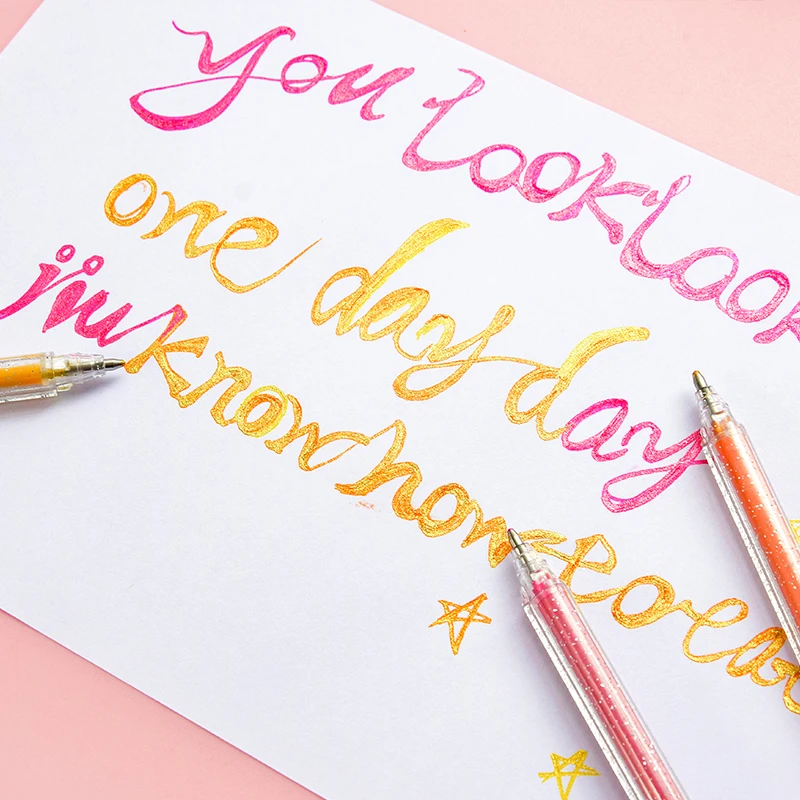 you look look
one day day day
know how to